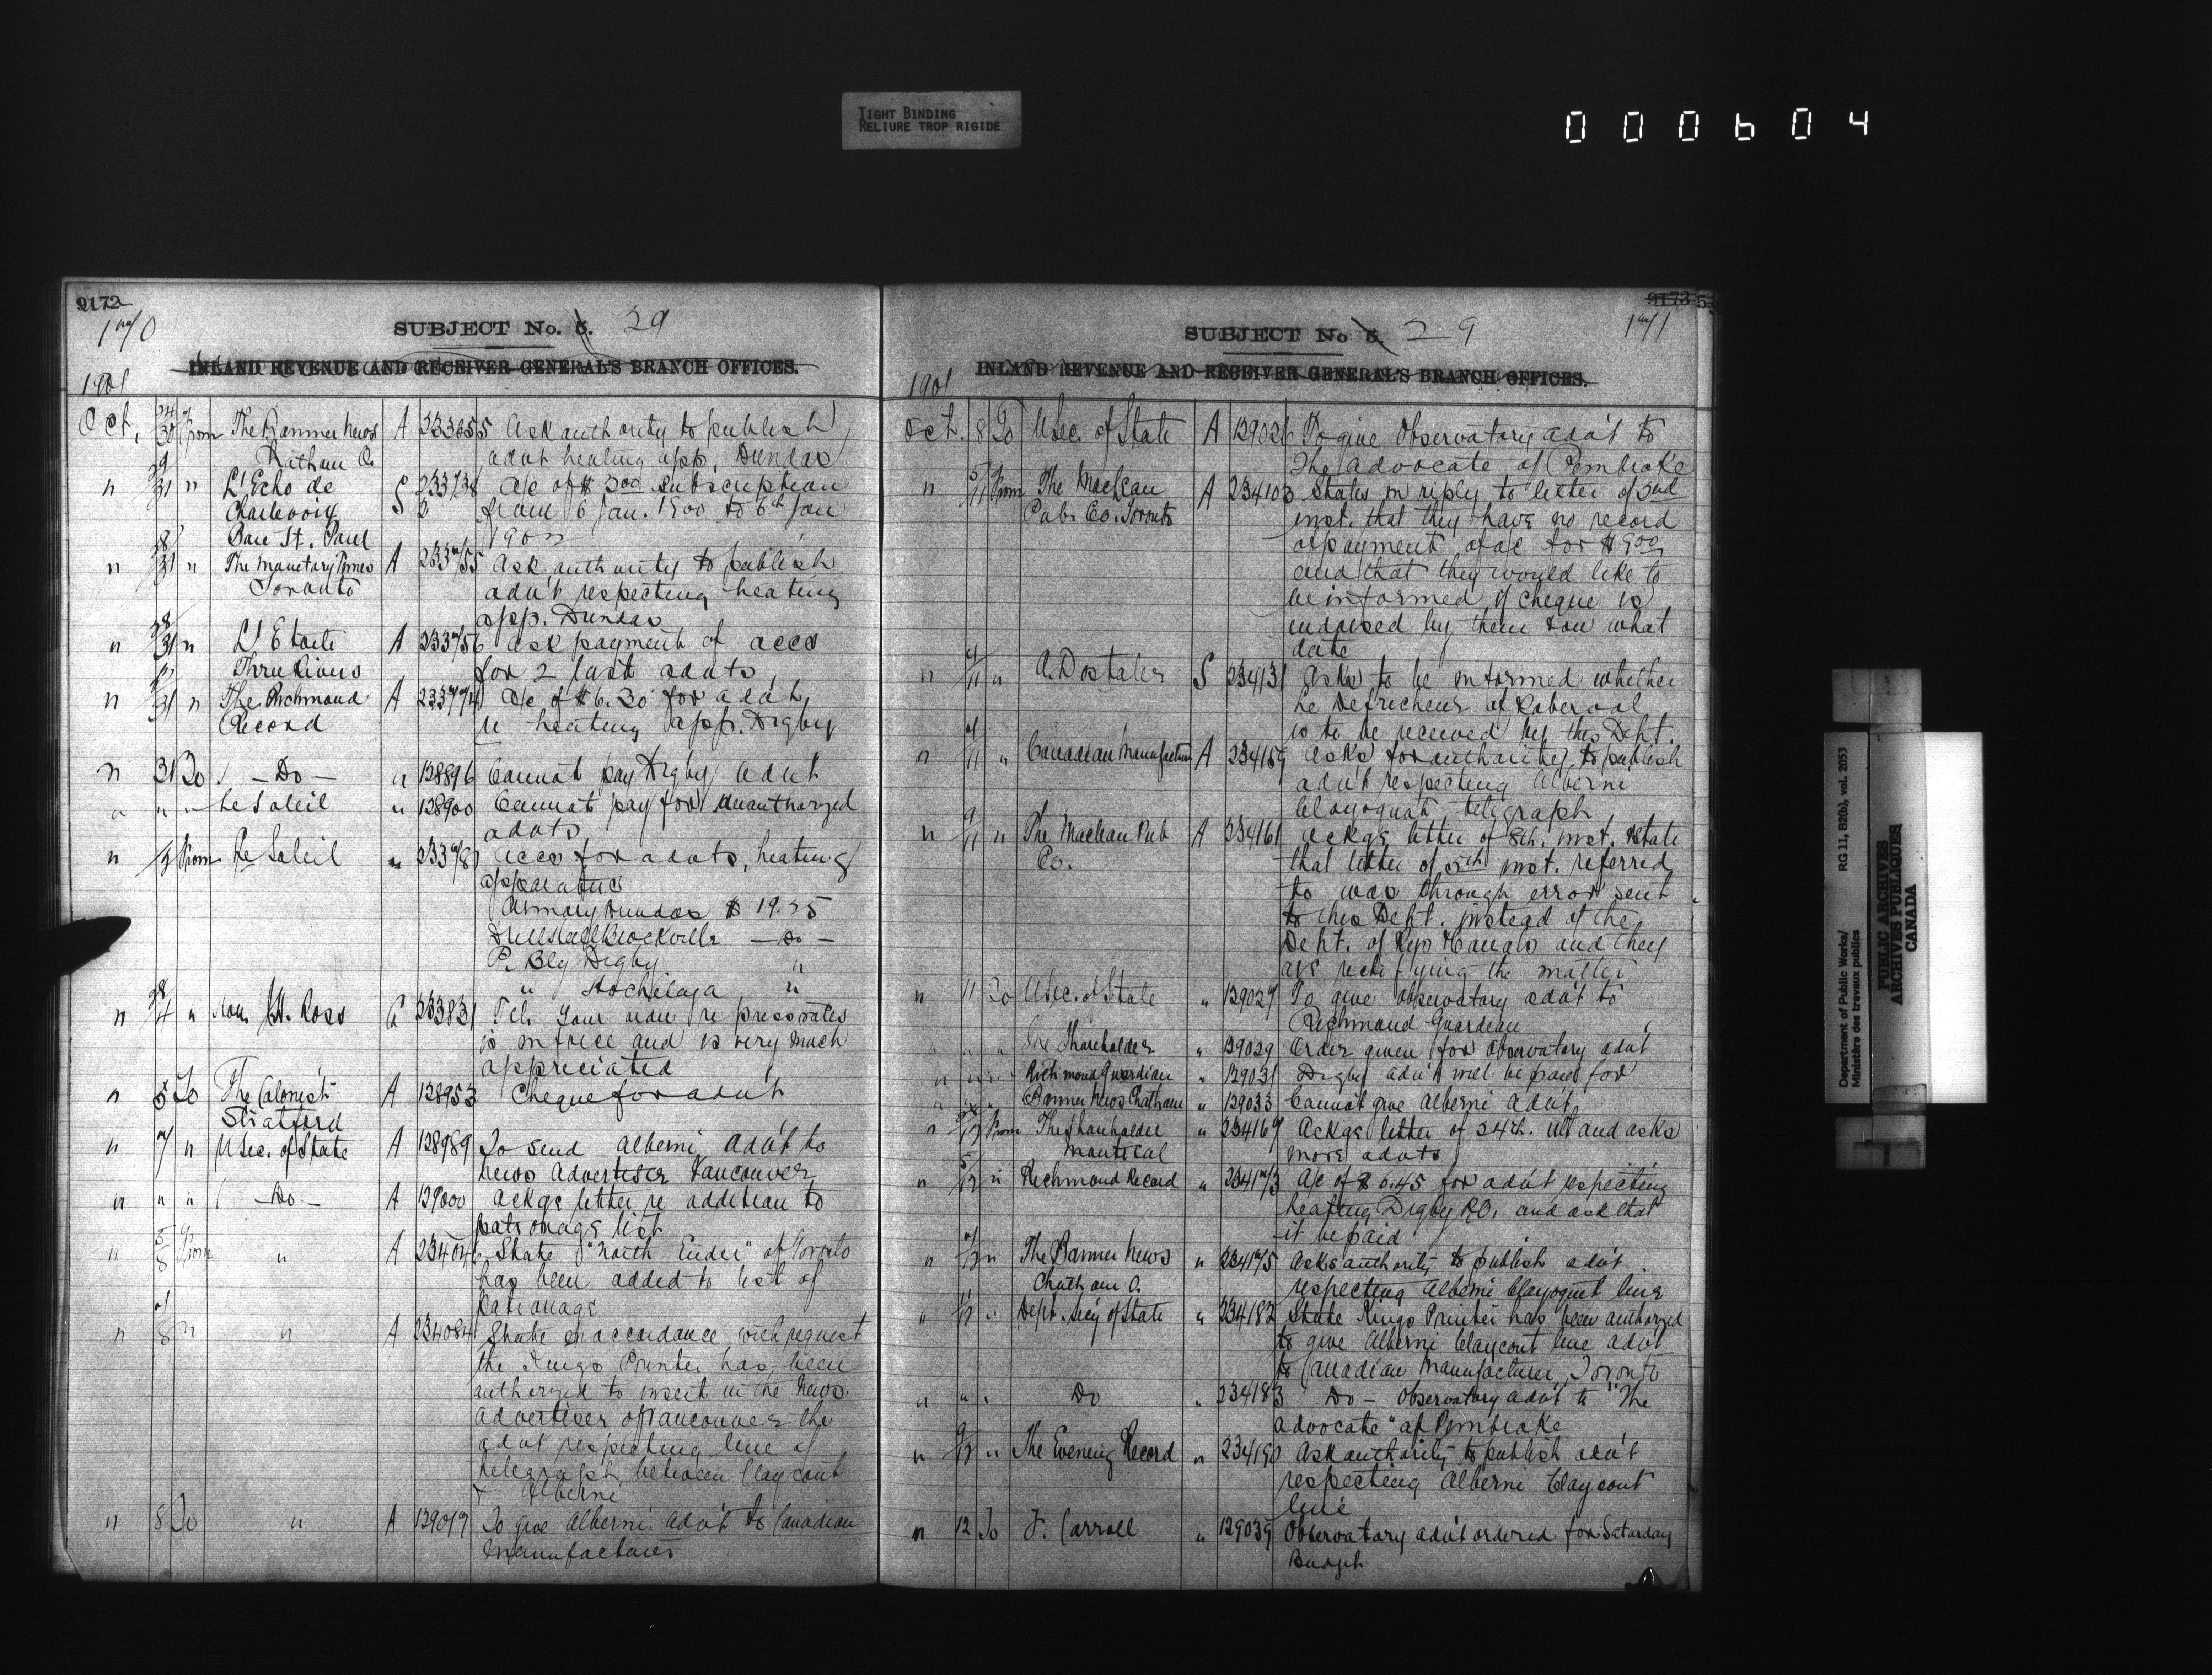 TIGHT BINDING
RELIURE TROP RIGIDE
000604
9172
170
SUBJECT No. 5. 29
INLAND REVENUE AND RECEIVER GENERAL'S BRANCH OFFICES.
1901
Oct. 30 From The Banner News A Ask authority to publish
Chatham O. advt heating app. Dundas
" 31 " L'Echo de S 233738 a/c of $3.00 subscription
Charlevoix 2 from 6 Jan. 1900 to 6th Jan
Baie St. Paul 190
" 31 " The Monetary Times A 233755 Ask authority to publish
Toronto adv't respecting heating
app. Dundas
" 31 " A 233756 ask payment of accs
Three Rivers for 2 last advts
" 31 " The Richmond A 233774 a/c of $6.30 for advt,
Record re heating app. Digby
" 31 To - Do - " 128896 Cannot pay Digby advt
" " " Le Soleil " 128900 Cannot pay for unauthorized
advts
" From Le Soleil " Accs for advts, heating
apparatus
Armory Dundas $ 19.25
Drill Hall Brockville - Do -
P. Bldg Digby "
" Hochelaga "
" 4 " Hon. J.H. Ross G 233831 Tel. Your re press rates
is in force and is very much
appreciated
" 5 To The Colonist A 128953 Cheque for advt
Stratford
" 7 " U Sec. of State A 128989 To send Alberni adv't to
News Advertiser Vancouver
" " " - Do - A 129000 Ackgs letter re addition to
patronage list
" 5/8 From " A 234046 State "North Ender" of Toronto
has been added to list of
Patronage
" 8 " " A 234084 State in accordance with request
the Kings Printer has been
authorized to insert in the News
Advertiser of Vancouver the
advt respecting line of
telegraph between Claycout
+ Alberni
" 8 To " A 129017 To give Alberni adv't to Canadian
Manufacturer
9173
171
SUBJECT No 5. 29
INLAND REVENUE AND RECEIVER GENERAL'S BRANCH OFFICES.
1901
Oct. 8 To U Sec. of State A 129026 To give Observatory adv't to
The Advocate of Pembroke
" 5/11 From The MacLean A 234103 States in reply to letter of 3rd
Pub. Co. Toronto inst. that they have no record
of payment of a/c for $9.00
and that they would like to
be informed if cheque is
endorsed by them & on what
date
" 11 " A. Dostaler S 234131 Asks to be informed whether
Le Defricheur of Roberval
is to be received by this Dept.
" 11 " Canadian Manufacturer A 234159 Asks for authority to publish
adv't respecting Alberni
Clayoquot telegraph
" 9/11 " The MacLean Pub A 234161 Ackgs letter of 8th. inst. & state
Co. that letter of 5th inst. referred
to was through error sent
to this Dept. instead of the
Dept. of Rys & Canals and they
are rectifying the matter
" 11 To U Sec. of State " 129027 To give Observatory adv't to
Richmond Guardian
" " " The Shareholder " 129029 Order given for Observatory advt
" " " Richmond Guardian " 129031 Digby adv't will be paid for
" " " Banner News Chatham " 129033 Cannot give Alberni advt,
" 12 From The Shareholder " 234167 Ackgs letter of 24th. ult and asks
Montreal more advts
" 12 " Richmond Record " 234173 A/c of $6.45 for adv't respecting
heating Digby P.O. and ask that
it be paid
" 12 " The Banner News " 234175 Asks authority to publish adv't
Chatham O. respecting Alberni Clayoquot line
" 12 " Dept. Sec'y of State " 234182 State Kings Printer has been authorized
to give Alberni Claycout line advt
to Canadian Manufacturer, Toronto
" " " Do " 234183 Do - Observatory adv't to "The
Advocate" of Pembroke
" 9/12 " The Evening Record " 234190 Ask authority to publish adv't
respecting Alberni Claycout
line
" 12 To J. Carroll " 129039 Observatory adv't ordered for Saturday
Budget
Department of Public Works/ RG 11, B2(b), vol. 2053
Ministère des travaux publics
PUBLIC ARCHIVES
ARCHIVES PUBLIQUES
CANADA